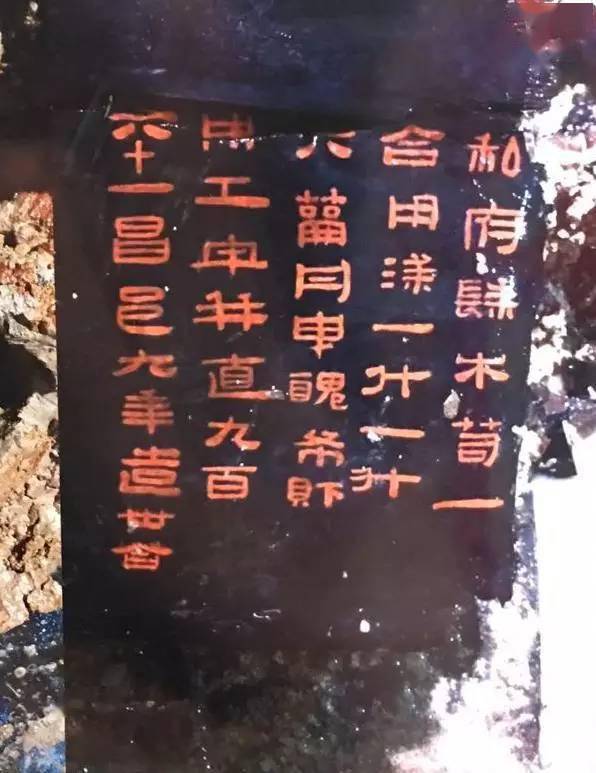 私府髹木笥一
合用漆一斗一升
六籥丹臾醜布財
用工牢并直九百
六十一昌邑九年造卅合